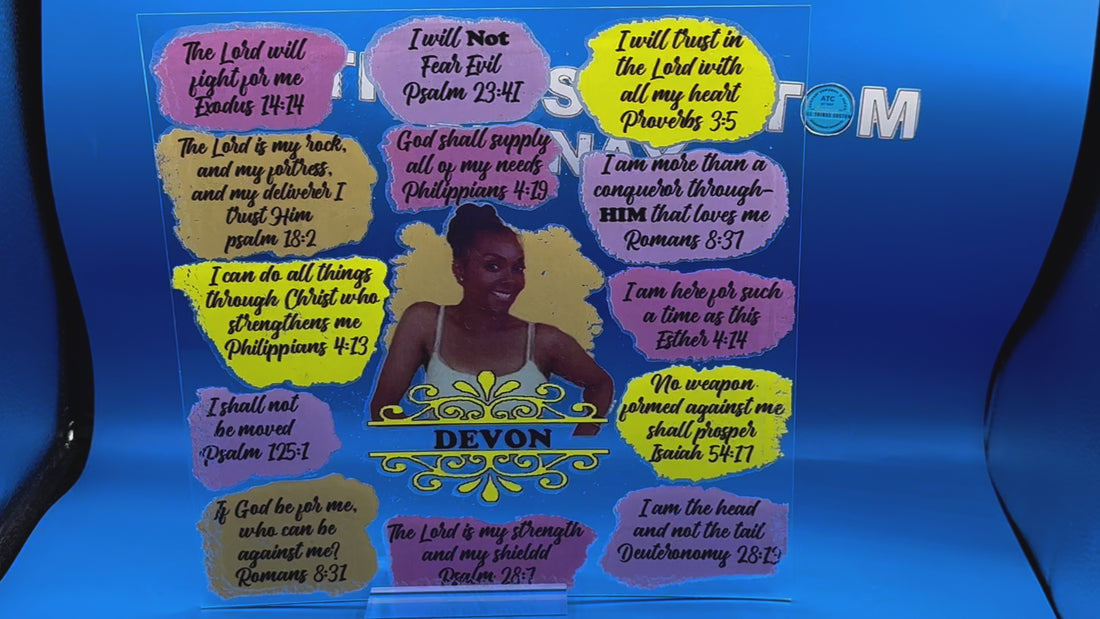 The Lord will
fight for me
Exodus 14:14
I will Not
Fear Evil
Psalm 23:4I
I will trust in
the Lord with
all my heart
Proverbs 3:5
The Lord is my rock,
and my fortress,
and my deliverer I
trust Him
psalm 18:2
God shall supply
all of my needs
Philippians 4:19
I am more than a
conqueror through-
HIM that loves me
Romans 8:37
I can do all things
through Christ who
strengthens me
Philippians 4:13
I am here for such
a time as this
Esther 4:14
I shall not
be moved
Psalm 125:1
DEVON
No weapon
formed against me
shall prosper
Isaiah 54:17
If God be for me,
who can be
against me?
Romans 8:31
The Lord is my strength
and my shieldd
Psalm 28:7
I am the head
and not the tail
Deuteronomy 28:13
ATC
ALL THINGS CUSTOM